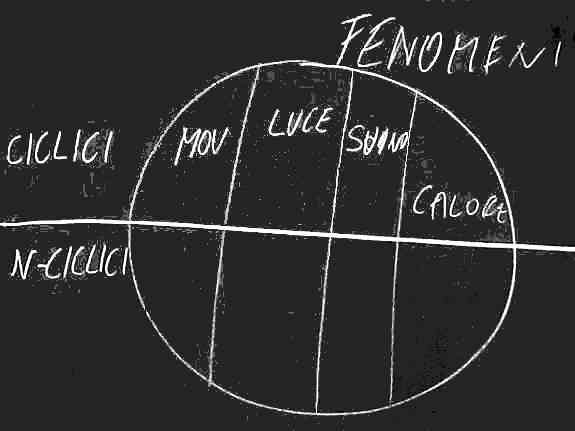 FENOMENI
CICLICI
MOV
LUCE
SUONO
CALORE
N-CICLICI